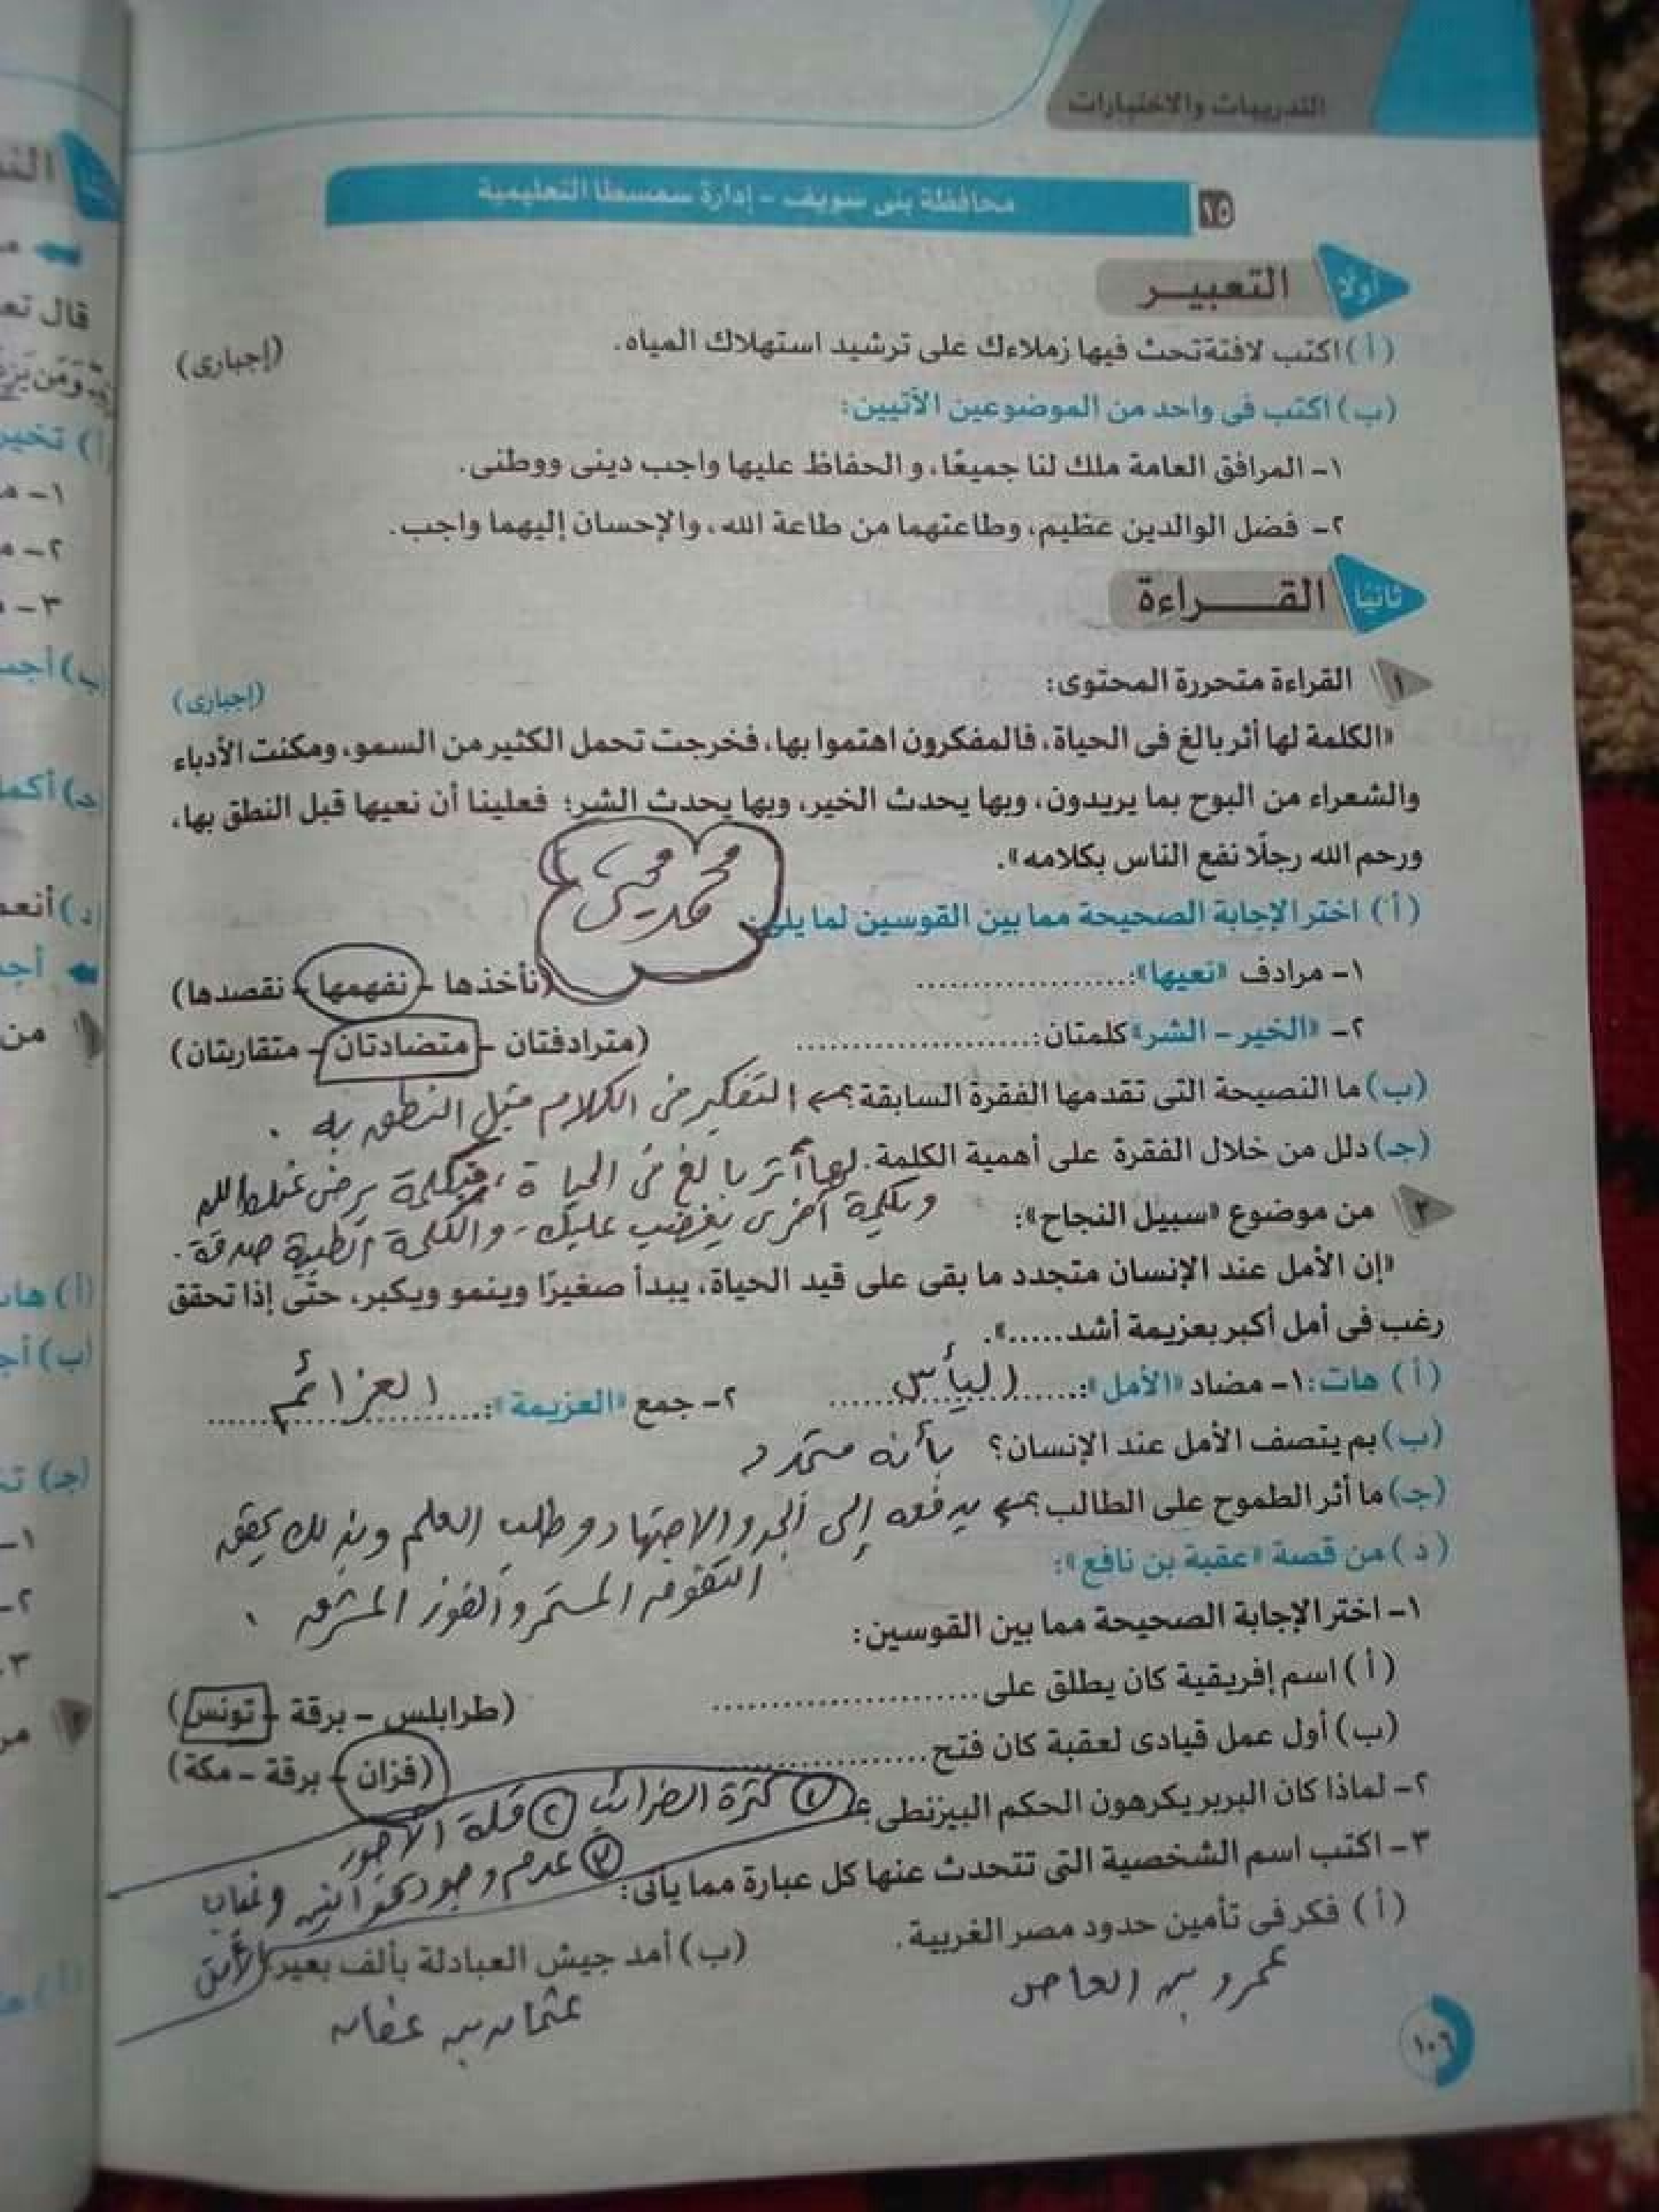 التدريبات والاختبارات
١٥ محافظة بنى سويف - إدارة سمسطا التعليمية
أولا التعبيـر
(أ) اكتب لافتة تحث فيها زملاءك على ترشيد استهلاك المياه. (إجبارى)
(ب) اكتب فى واحد من الموضوعين الآتيين:
١- المرافق العامة ملك لنا جميعًا، و الحفاظ عليها واجب دينى ووطنى.
٢- فضل الوالدين عظيم، وطاعتهما من طاعة الله، والإحسان إليهما واجب.
ثانيا القــــراءة
١ القراءة متحررة المحتوى: (إجبارى)
«الكلمة لها أثر بالغ فى الحياة، فالمفكرون اهتموا بها، فخرجت تحمل الكثير من السمو، ومكنت الأدباء
والشعراء من البوح بما يريدون، وبها يحدث الخير، وبها يحدث الشر؛ فعلينا أن نعيها قبل النطق بها،
ورحم الله رجلًا نفع الناس بكلامه».
محمد
(أ) اختر الإجابة الصحيحة مما بين القوسين لما يلى:
١- مرادف «نعيها»:.................... (نأخذها - نفهمها - نقصدها)
٢- «الخير - الشر» كلمتان:..................... (مترادفتان - متضادتان - متقاربتان)
(ب) ما النصيحة التى تقدمها الفقرة السابقة؟ التفكير فى الكلام قبل النطق به .
(جـ) دلل من خلال الفقرة على أهمية الكلمة. لها أثر بالغ فى الحياة ، فبكلمة يرضى عنك الله
وبكلمة أخرى يغضب عليك - والكلمة الطيبة صدقة .
٢ من موضوع «سبيل النجاح»:
«إن الأمل عند الإنسان متجدد ما بقى على قيد الحياة، يبدأ صغيرًا وينمو ويكبر، حتَّى إذا تحقق
رغب فى أمل أكبر بعزيمة أشد.....».
(أ) هات: ١- مضاد «الأمل»: اليأس ٢- جمع «العزيمة»: العزائم
(ب) بم يتصف الأمل عند الإنسان؟ بأنه متجدد
(جـ) ما أثر الطموح على الطالب؟ يدفعه إلى الجد والاجتهاد وطلب العلم وبذلك يحقق
التفوق المستمر والفوز المشرق .
(د) من قصة «عقبة بن نافع»:
١- اختر الإجابة الصحيحة مما بين القوسين:
(أ) اسم إفريقية كان يطلق على........................ (طرابلس - برقة - تونس)
(ب) أول عمل قيادى لعقبة كان فتح.................... (فزان - برقة - مكة)
٢- لماذا كان البربر يكرهون الحكم البيزنطى؟ ① كثرة الضرائب ② قلة الأجور
③ عدم وجود قوانين وغياب
الأمن
٣- اكتب اسم الشخصية التى تتحدث عنها كل عبارة مما يأتى:
(أ) فكر فى تأمين حدود مصر الغربية. (ب) أمد جيش العبادلة بألف بعير.
عمرو بن العاص عثمان بن عفان
١٠٦